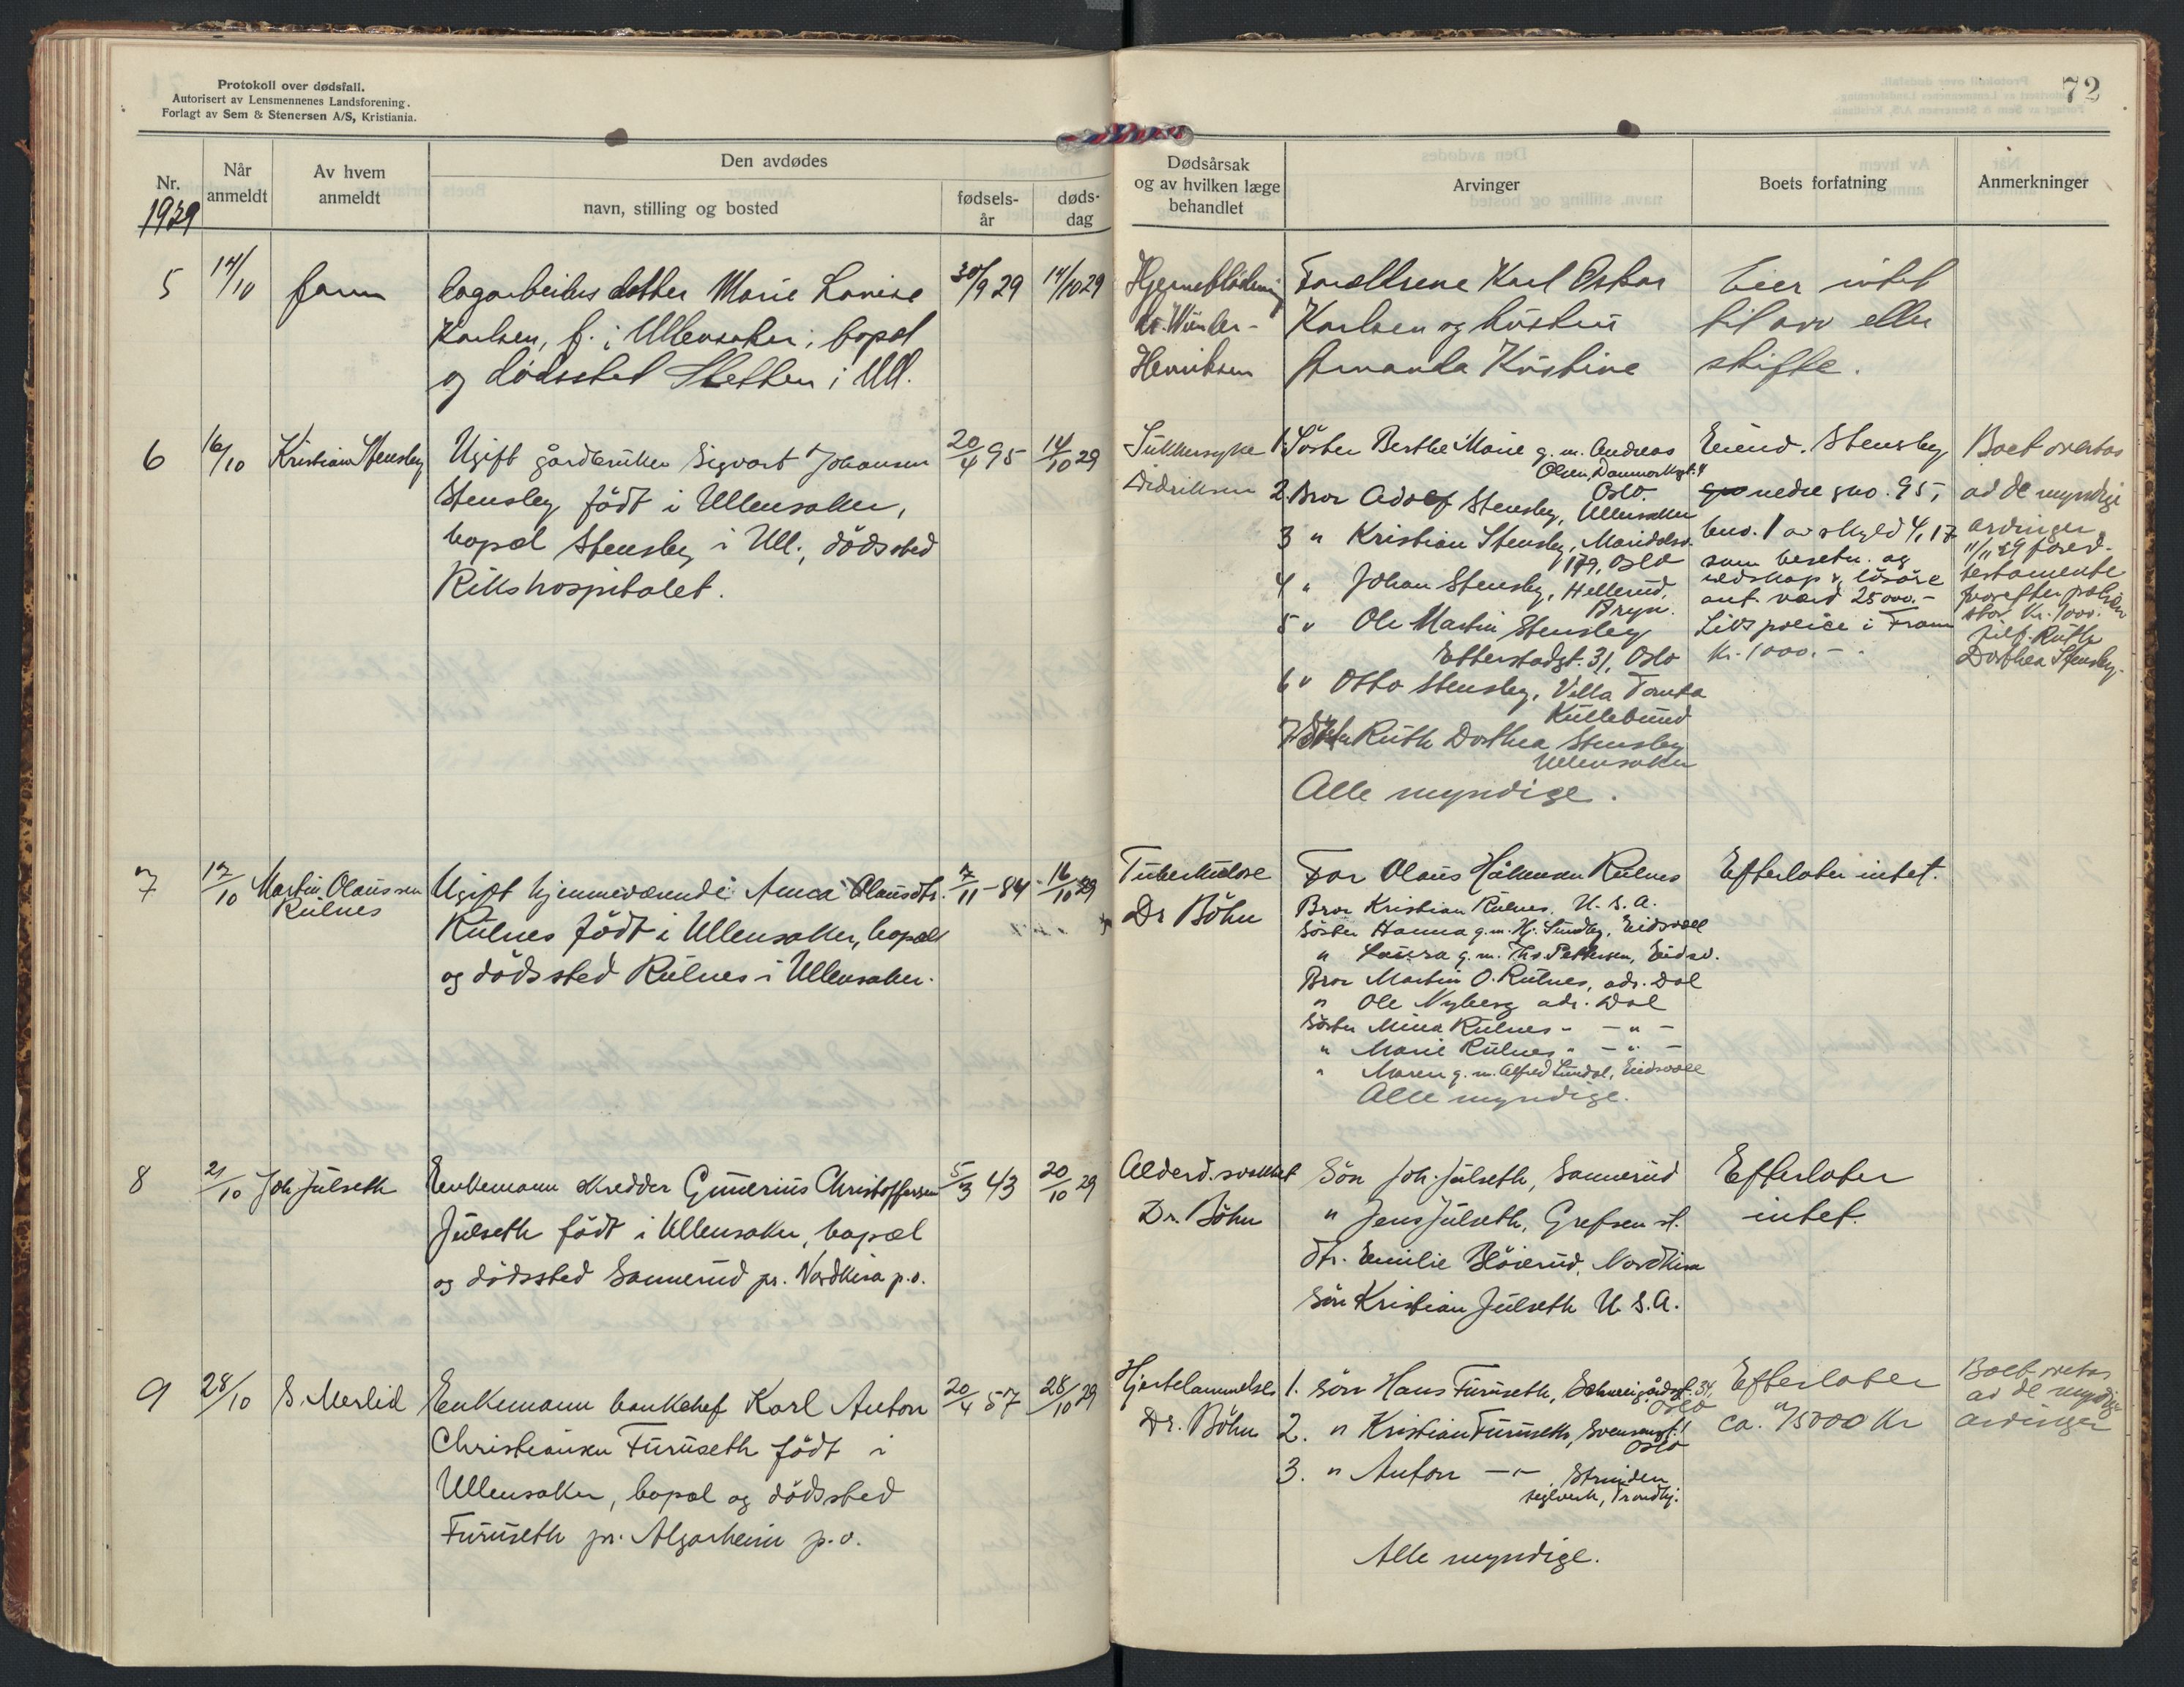 Protokoll over dødsfall.
Autorisert av Lensmennenes Landsforening.
Forlagt av Sem & Stenersen A/S, Kristiania.
72
Nr.
1929
Når
anmeldt
Av hvem
anmeldt
Den avdødes
navn, stilling og bosted
fødsels-
år
døds-
dag
Dødsårsak
og av hvilken læge
behandlet
Arvinger
Boets forfatning
Anmerkninger
5 14/10 faren
datter Marie Lovise
Karlsen, f. i Ullensaker, bopæl
og dødssted Sletten i Ull.
30/9 29 14/10 29
Hjerneblødning
Henriksen
Forældrene Karl Oskar
Karlsen og hustru
Amanda Kristine
Eier intet
til arv eller
skifte.
6 16/10 Kristian Stensby
Ugift gårdbruker Sigvart Johansen
Stensby født i Ullensaker,
bopæl Stensby i Ull., dødssted
Rikshospitalet.
20/4 95 14/10 29
Sukkersyke
Didriksen
1. Søster Berthe Marie g.m. Andreas
Olsen, Danmarksgt. 4
Oslo.
2. Bror Adolf Stensby, Ullensaker
3 " Kristian Stensby, Maridalsv.
179, Oslo
4 " Johan Stensby, Hellerud,
Bryn.
5 " Ole Martin Stensby
Etterstadgt. 31, Oslo
6 " Otto Stensby, Villa Tomta
Kullebund
7 Ruth Dorthea Stensby
Ullensaker
Alle myndige.
Eiend. Stensby
nedre gno. 95,
bno. 1 av skyld 4,17
som besetn. og
redskap & løsøre
ant. værd 25000.-
Livspolice i Fram
kr. 1000.-
Boet overtas
av de myndige
arvinger
11/11 29
testamente
hvorefter polisen
stor kr. 1000.
tilf. Ruth
Dorthea Stensby.
7 17/10 Martin Olaussen
Rulnes
Ugift hjemmeværende Anna Olausdtr.
Rulnes født i Ullensaker, bopæl
og dødssted Rulnes i Ullensaker.
7/11-84 16/10 29
Tuberkulose
Dr Bøhn
Far Olaus Håkensen Rulnes
Bror Kristian Rulnes, U.S.A.
Søster Hanna g.m. Hj. Sundby, Eidsvoll
" Laura g.m. Thv. Pettersen, Eidsv.
Bror Martin O. Rulnes, adr. Dal
" Ole Nyberg adr. Dal
Søster Mina Rulnes " - " -
" Marie Rulnes " - " -
" Maren g.m. Alfred Lundal, Eidsvoll
Alle myndige.
Efterlater intet.
8 21/10 Joh Julseth
Enkemann skredder Gunerius Christoffersen
Julseth født i Ullensaker, bopæl
og dødssted Sannerud pr. Nordkisa p.o.
5/3 43 20/10 29
Alderd. svakhet
Dr. Bøhn
Søn Joh. Julseth, Sannerud
" Jens Julseth, Grefsen st.
dtr. Emilie Bløierud, Nordkisa
Søn Kristian Julseth U.S.A.
Efterlater
intet.
9 28/10 S. Merlid
Enkemann bankchef Karl Anton
Christiansen Furuseth født i
Ullensaker, bopæl og dødssted
Furuseth pr. Algarheim p.o.
20/4 57 28/10 29
Hjertelammelse
Dr. Bøhn
1. Søn Hans Furuseth, Schweigårdsgt. 34,
Oslo
2. " Kristian Furuseth, Svensengt. 1
Oslo
3. " Anton -"- , Strinden
teglverk, Trondhj.
Alle myndige.
Efterlater
ca. 75000 kr
Boet overtas
av de myndige
arvinger